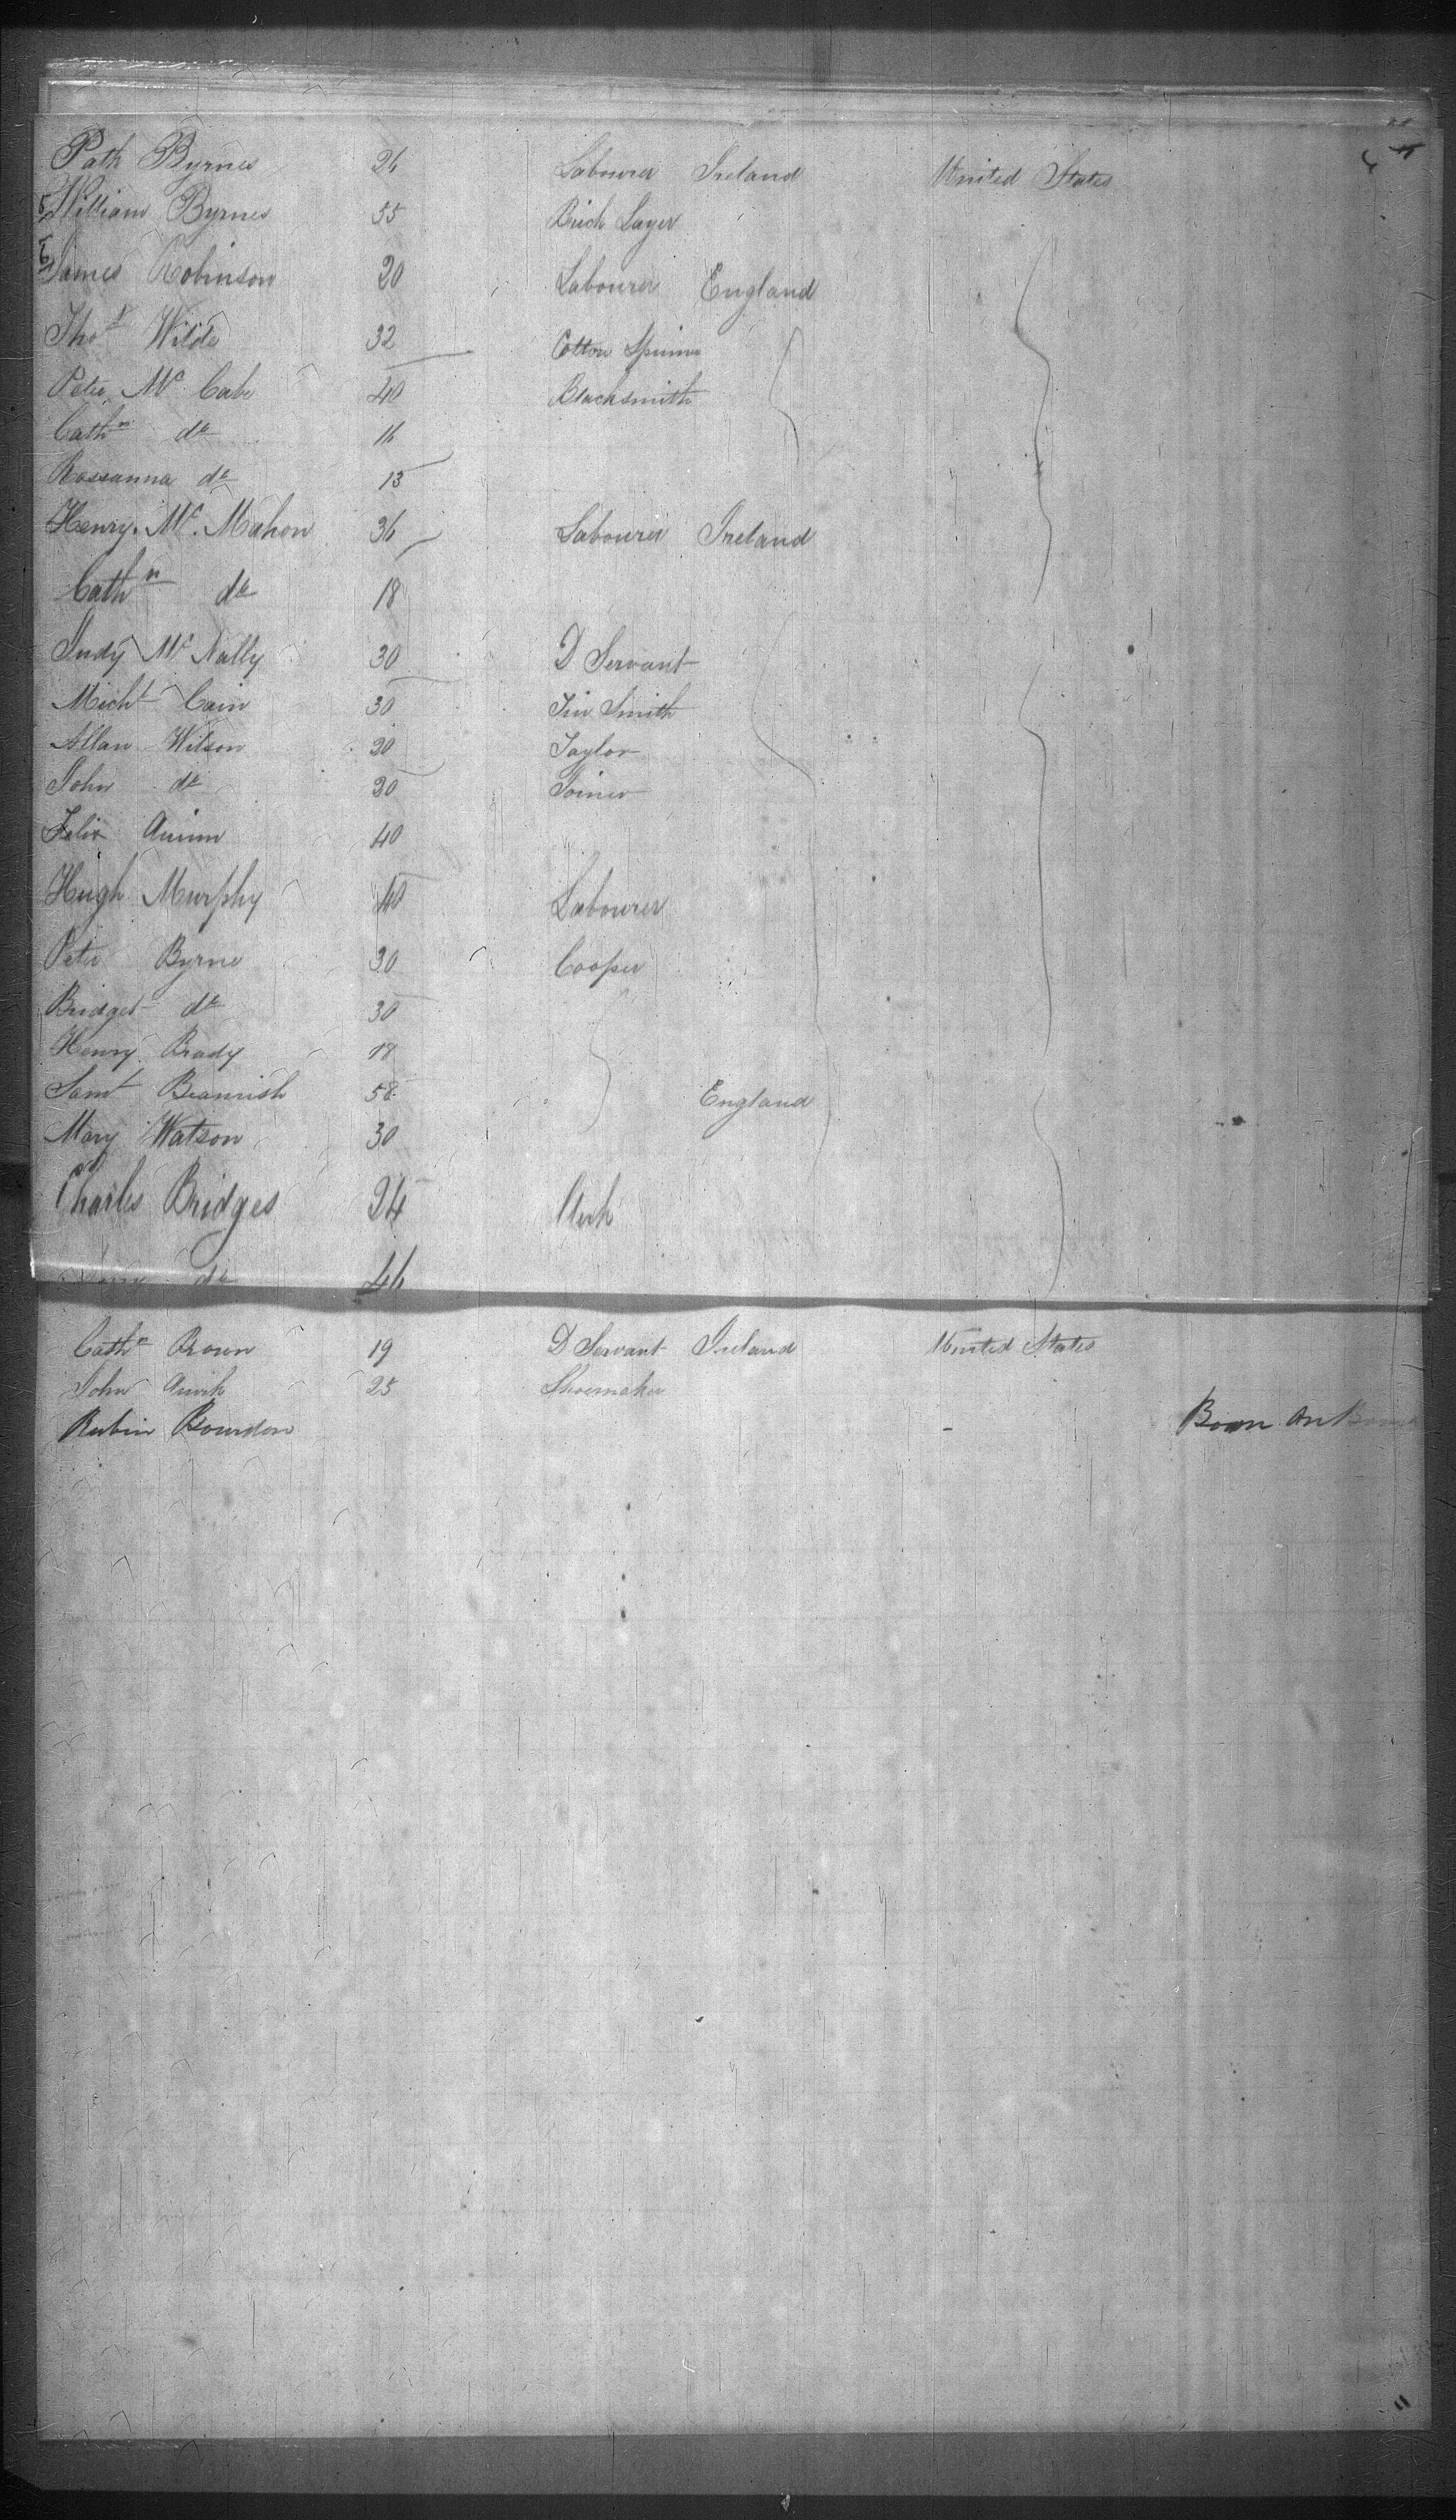 Patk Byrnes 26 Labourer Ireland United States
William Byrnes 55 Brick Layer
James Robinson 20 Labourer England
Thos Wilde 32 Cotton Spinner
Peter Mc Cabe 40 Blacksmith
Cathn do 16
Rossanna do 13
Henry Mc Mahon 36 Labourer Ireland
Cathn do 18
Judy Mc Nally 30 D Servant
Michl Cain 30 Tin Smith
Allan Wilson 20 Taylor
John do 20 Joiner
Felix Quinn 40
Hugh Murphy 40 Labourer
Peter Byrne 30 Cooper
Bridget do 30
Henry Brady
Saml Beamish 58 England
Mary Watson 30
Charles Bridges 24 Clerk
do 46
Cathn Brown 19 D Servant Ireland United States
John Quirk 25 Shoemaker
Rubin Bourdon Born On Board